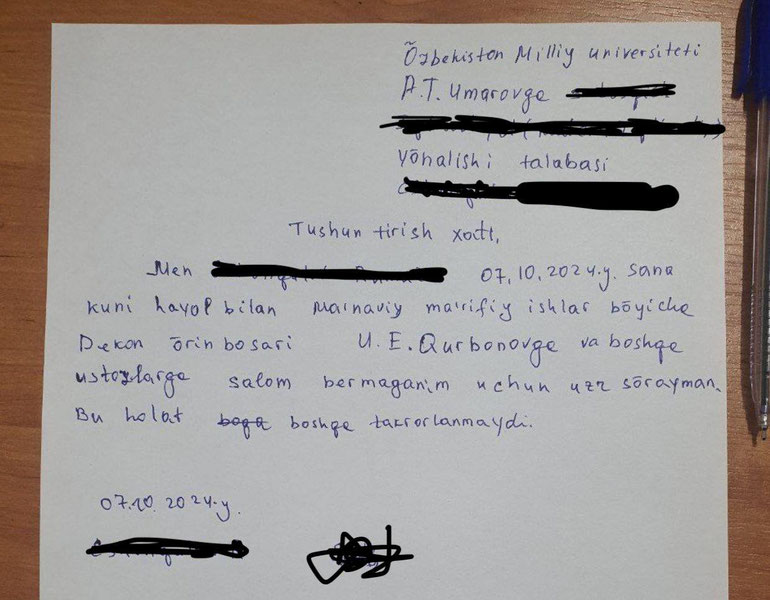 Õzbekiston Milliy universiteti
A.T. Umarovge
yõnalishi talabasi
Tushuntirish xati,
Men 07.10.2024.y. sana
kuni hayol bilan Ma'naviy ma'rifiy ishlar bõyicha
Dekon õrinbosari U.E.Qurbonovge va boshqe
ustozlarge salom bermaganim uchun uzr sõrayman.
Bu holat boshqe takrorlanmaydi.
07.10.2024.y.